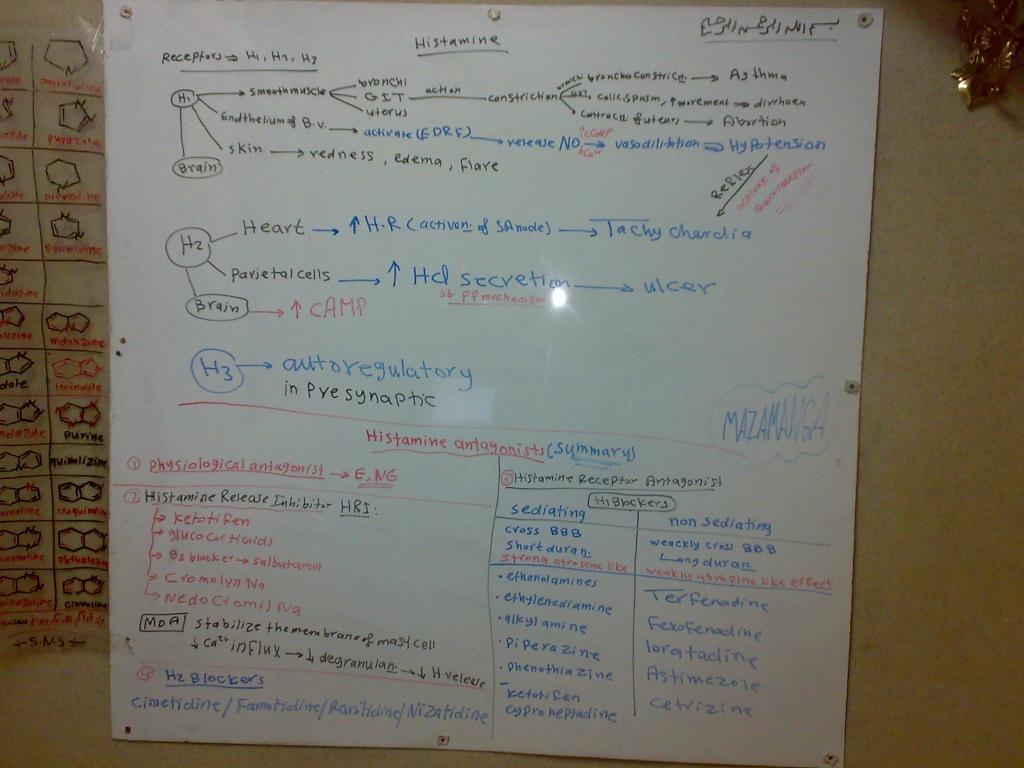 بسم الله الرحمن الرحيم
Histamine
Receptors ⇒ H1, H2, H3
H1 → smoothmuscle
bronchi
GIT
uterus
action
constriction
bronchi bronchoconstricn. → Asthma
GIT colicspasm, ↑ movement ⇒ dirrhoea
contracn. of uterus → Abortion
Endthelium of B.v. → activate (EDRF) → release NO → vasodilitation ⇒ Hypotension
↑cGMP
↓Ca2+
skin → redness, edema, Flare
Brain
Reflex
H2
Heart → ↑ H.R (activon. of SA node) → Tachy chardia
parietal cells → ↑ Hcl secretion → ulcer
Brain → ↑ cAMP
H3 → autoregulatory
in presynaptic
MAZAMANGA
Histamine antagonists (summary)
① physiological antagonist → E, NE
② Histamine Release Inhibitor HRI:
Ketotifen
glucocorticoids
B2 blocker → salbutamol
Cromolyn Na
Nedocromis Na
MOA stabilize the membrane of mast cell
↓ Ca2+ inflUX → ↓ degranulan. → ↓ H release
④ H2 Blockers
Cimetidine / Famotidine / Ranitidine / Nizatidine
③ Histamine Receptor Antagonist
H1 Blockers
sediating
cross BBB
short duran.
strong atropine like
• ethanolamines
• ethylenediamine
• alkylamine
• piperazine
• phenothiazine
- ketotifen
cyproheptadine
non sediating
weackly cross BBB
Long duran
weakly atropine like effect
Terfenadine
Fexofenadine
loratadine
Astimezole
Cetrizine
pyrazole
purine
isoindole
S.N.S